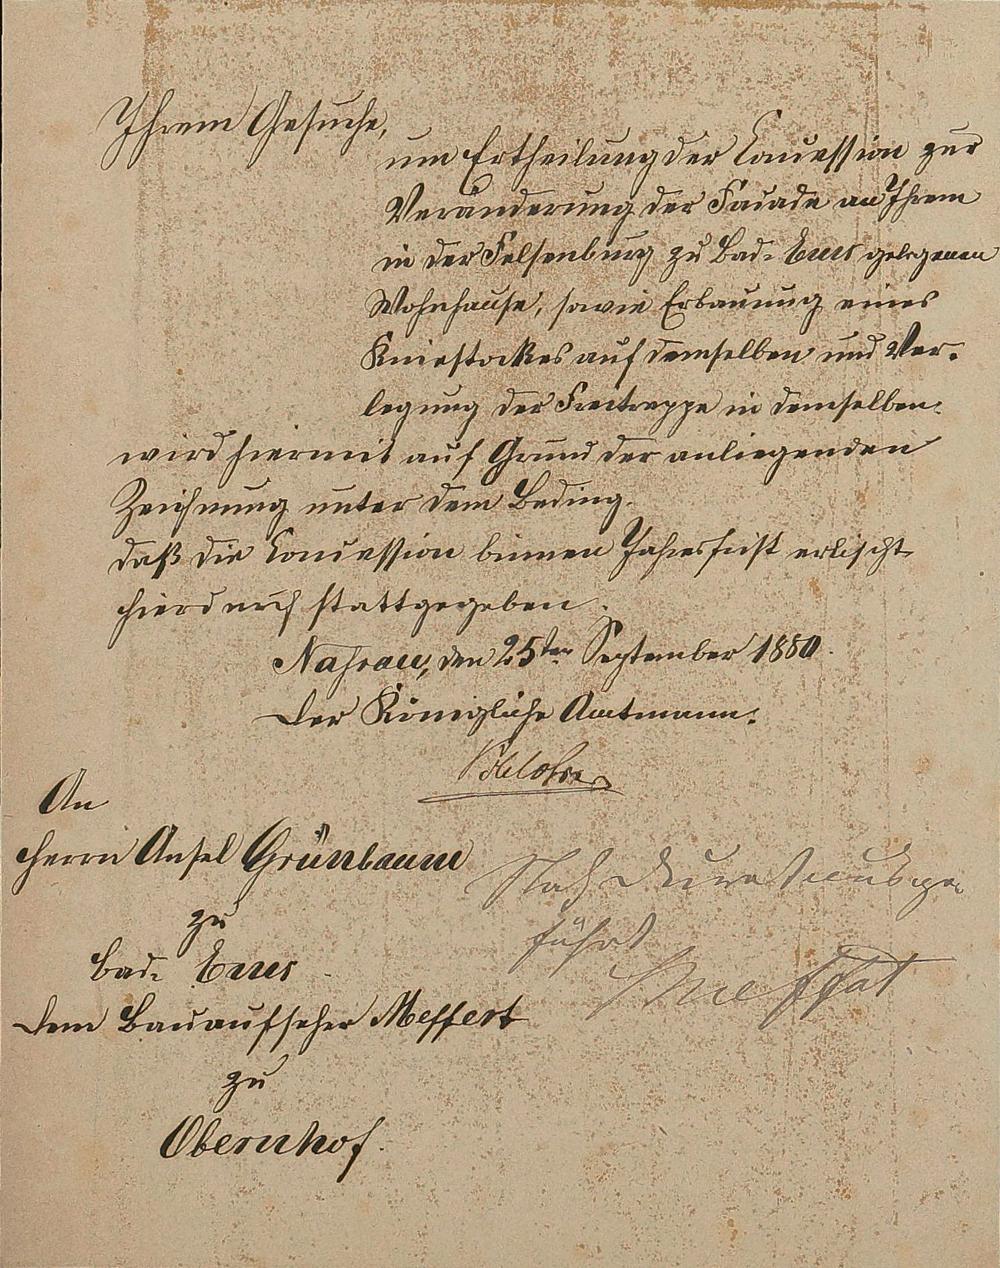 Ihrem Gesuche,
um Ertheilung der Concession zur
Veränderung der Facade an Ihrem
in der Felsenburg zu Bad-Ems gelegenen
Wohnhause, sowie Erbauung eines
Kniestockes auf demselben und Ver-
legung der Freitreppe in demselben
wird hiermit auf Grund der anliegenden
Zeichnung unter dem Beding.
daß die Concession binnen Jahresfrist erlischt
hierdurch stattgegeben.
Nassau, den 25ten September 1880.
Der Königliche Amtmann.
An
Herrn Ansel Grünbaum
zu
Bad-Ems
Nach
geführt
Meffert
Dem Bauaufseher Meffert
zu
Obernhof.